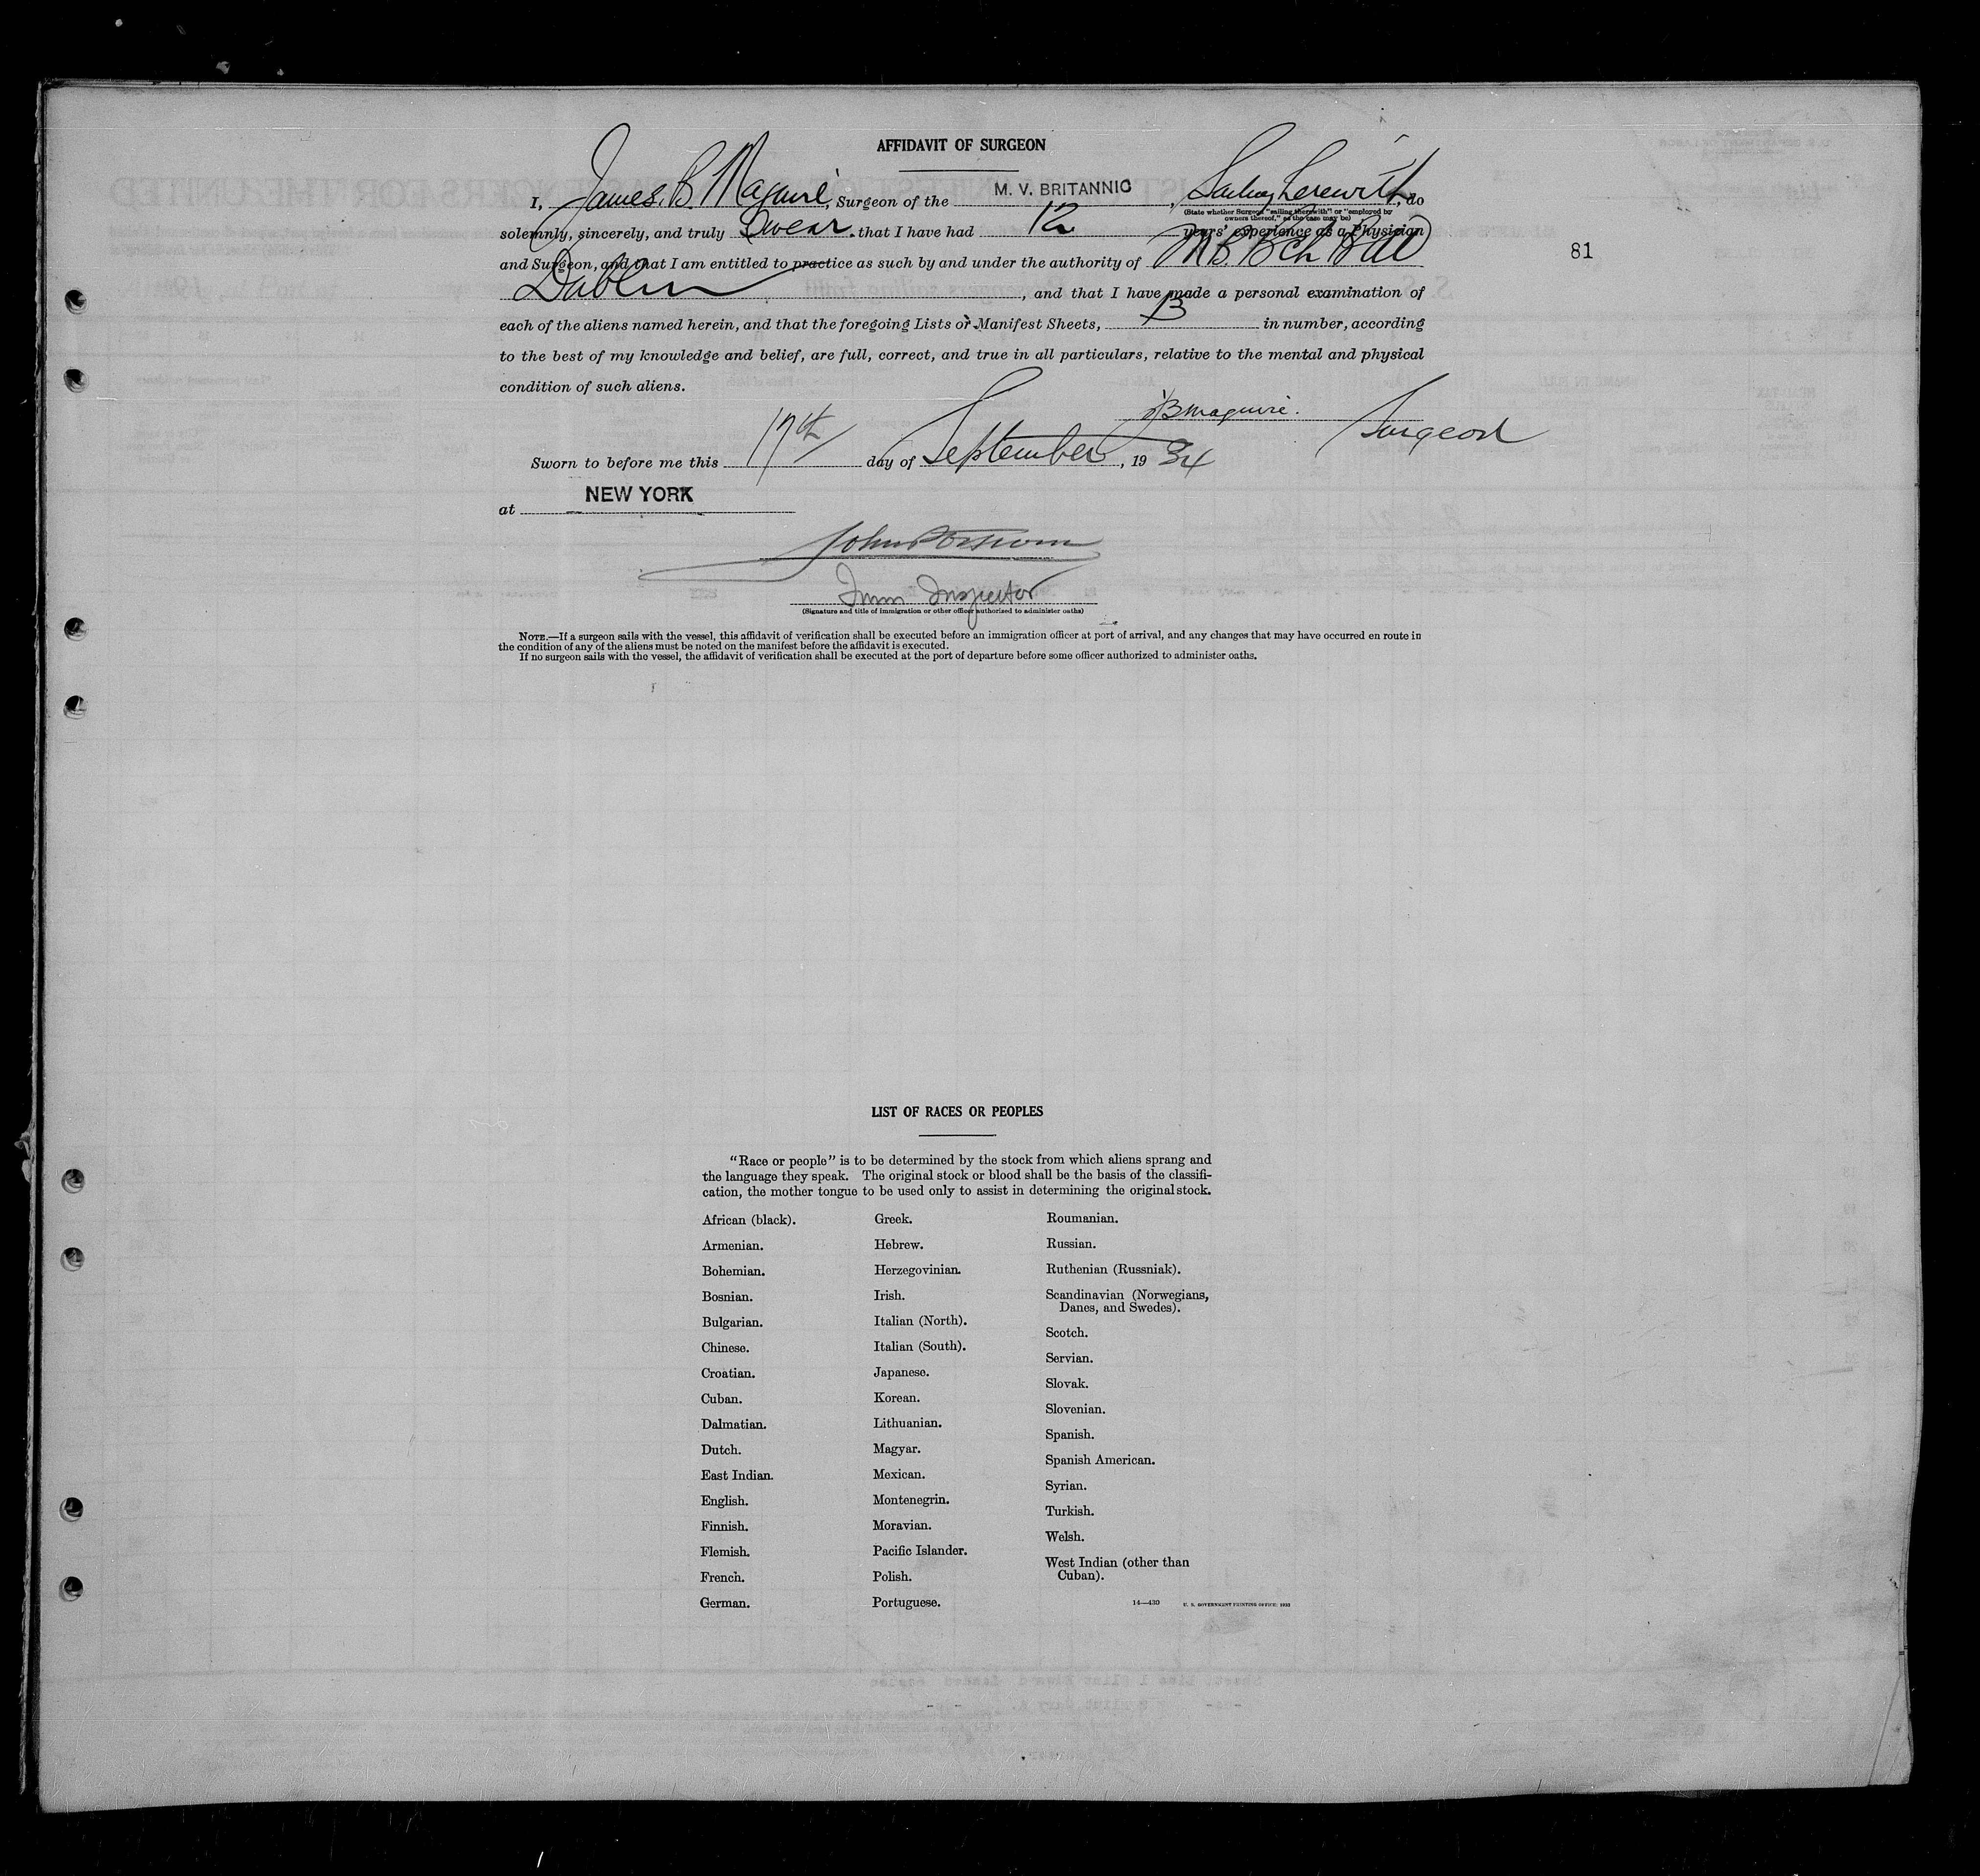 AFFIDAVIT OF SURGEON
I, James. B. Maguire, Surgeon of the M. V. BRITANNIC, Sailing therewith, do
(State whether Surgeon "sailing therewith" or "employed by
owners thereof," as the case may be)
solemnly, sincerely, and truly Swear. that I have had 12 years' experience as a Physician
and Surgeon, and that I am entitled to practice as such by and under the authority of M.B. BCh BAO
Dublin, and that I have made a personal examination of
each of the aliens named herein, and that the foregoing Lists or Manifest Sheets, 13 in number, according
to the best of my knowledge and belief, are full, correct, and true in all particulars, relative to the mental and physical
condition of such aliens.
JB Maguire. Surgeon
Sworn to before me this 17th day of September, 1934
at NEW YORK
John
Imm Inspector
(Signature and title of immigration or other officer authorized to administer oaths)
NOTE.—If a surgeon sails with the vessel, this affidavit of verification shall be executed before an immigration officer at port of arrival, and any changes that may have occurred en route in
the condition of any of the aliens must be noted on the manifest before the affidavit is executed.
If no surgeon sails with the vessel, the affidavit of verification shall be executed at the port of departure before some officer authorized to administer oaths.
81
LIST OF RACES OR PEOPLES
"Race or people" is to be determined by the stock from which aliens sprang and
the language they speak. The original stock or blood shall be the basis of the classifi-
cation, the mother tongue to be used only to assist in determining the original stock.
African (black).
Armenian.
Bohemian.
Bosnian.
Bulgarian.
Chinese.
Croatian.
Cuban.
Dalmatian.
Dutch.
East Indian.
English.
Finnish.
Flemish.
French.
German.
Greek.
Hebrew.
Herzegovinian.
Irish.
Italian (North).
Italian (South).
Japanese.
Korean.
Lithuanian.
Magyar.
Mexican.
Montenegrin.
Moravian.
Pacific Islander.
Polish.
Portuguese.
Roumanian.
Russian.
Ruthenian (Russniak).
Scandinavian (Norwegians,
Danes, and Swedes).
Scotch.
Servian.
Slovak.
Slovenian.
Spanish.
Spanish American.
Syrian.
Turkish.
Welsh.
West Indian (other than
Cuban).
14—430 U. S. GOVERNMENT PRINTING OFFICE: 1933